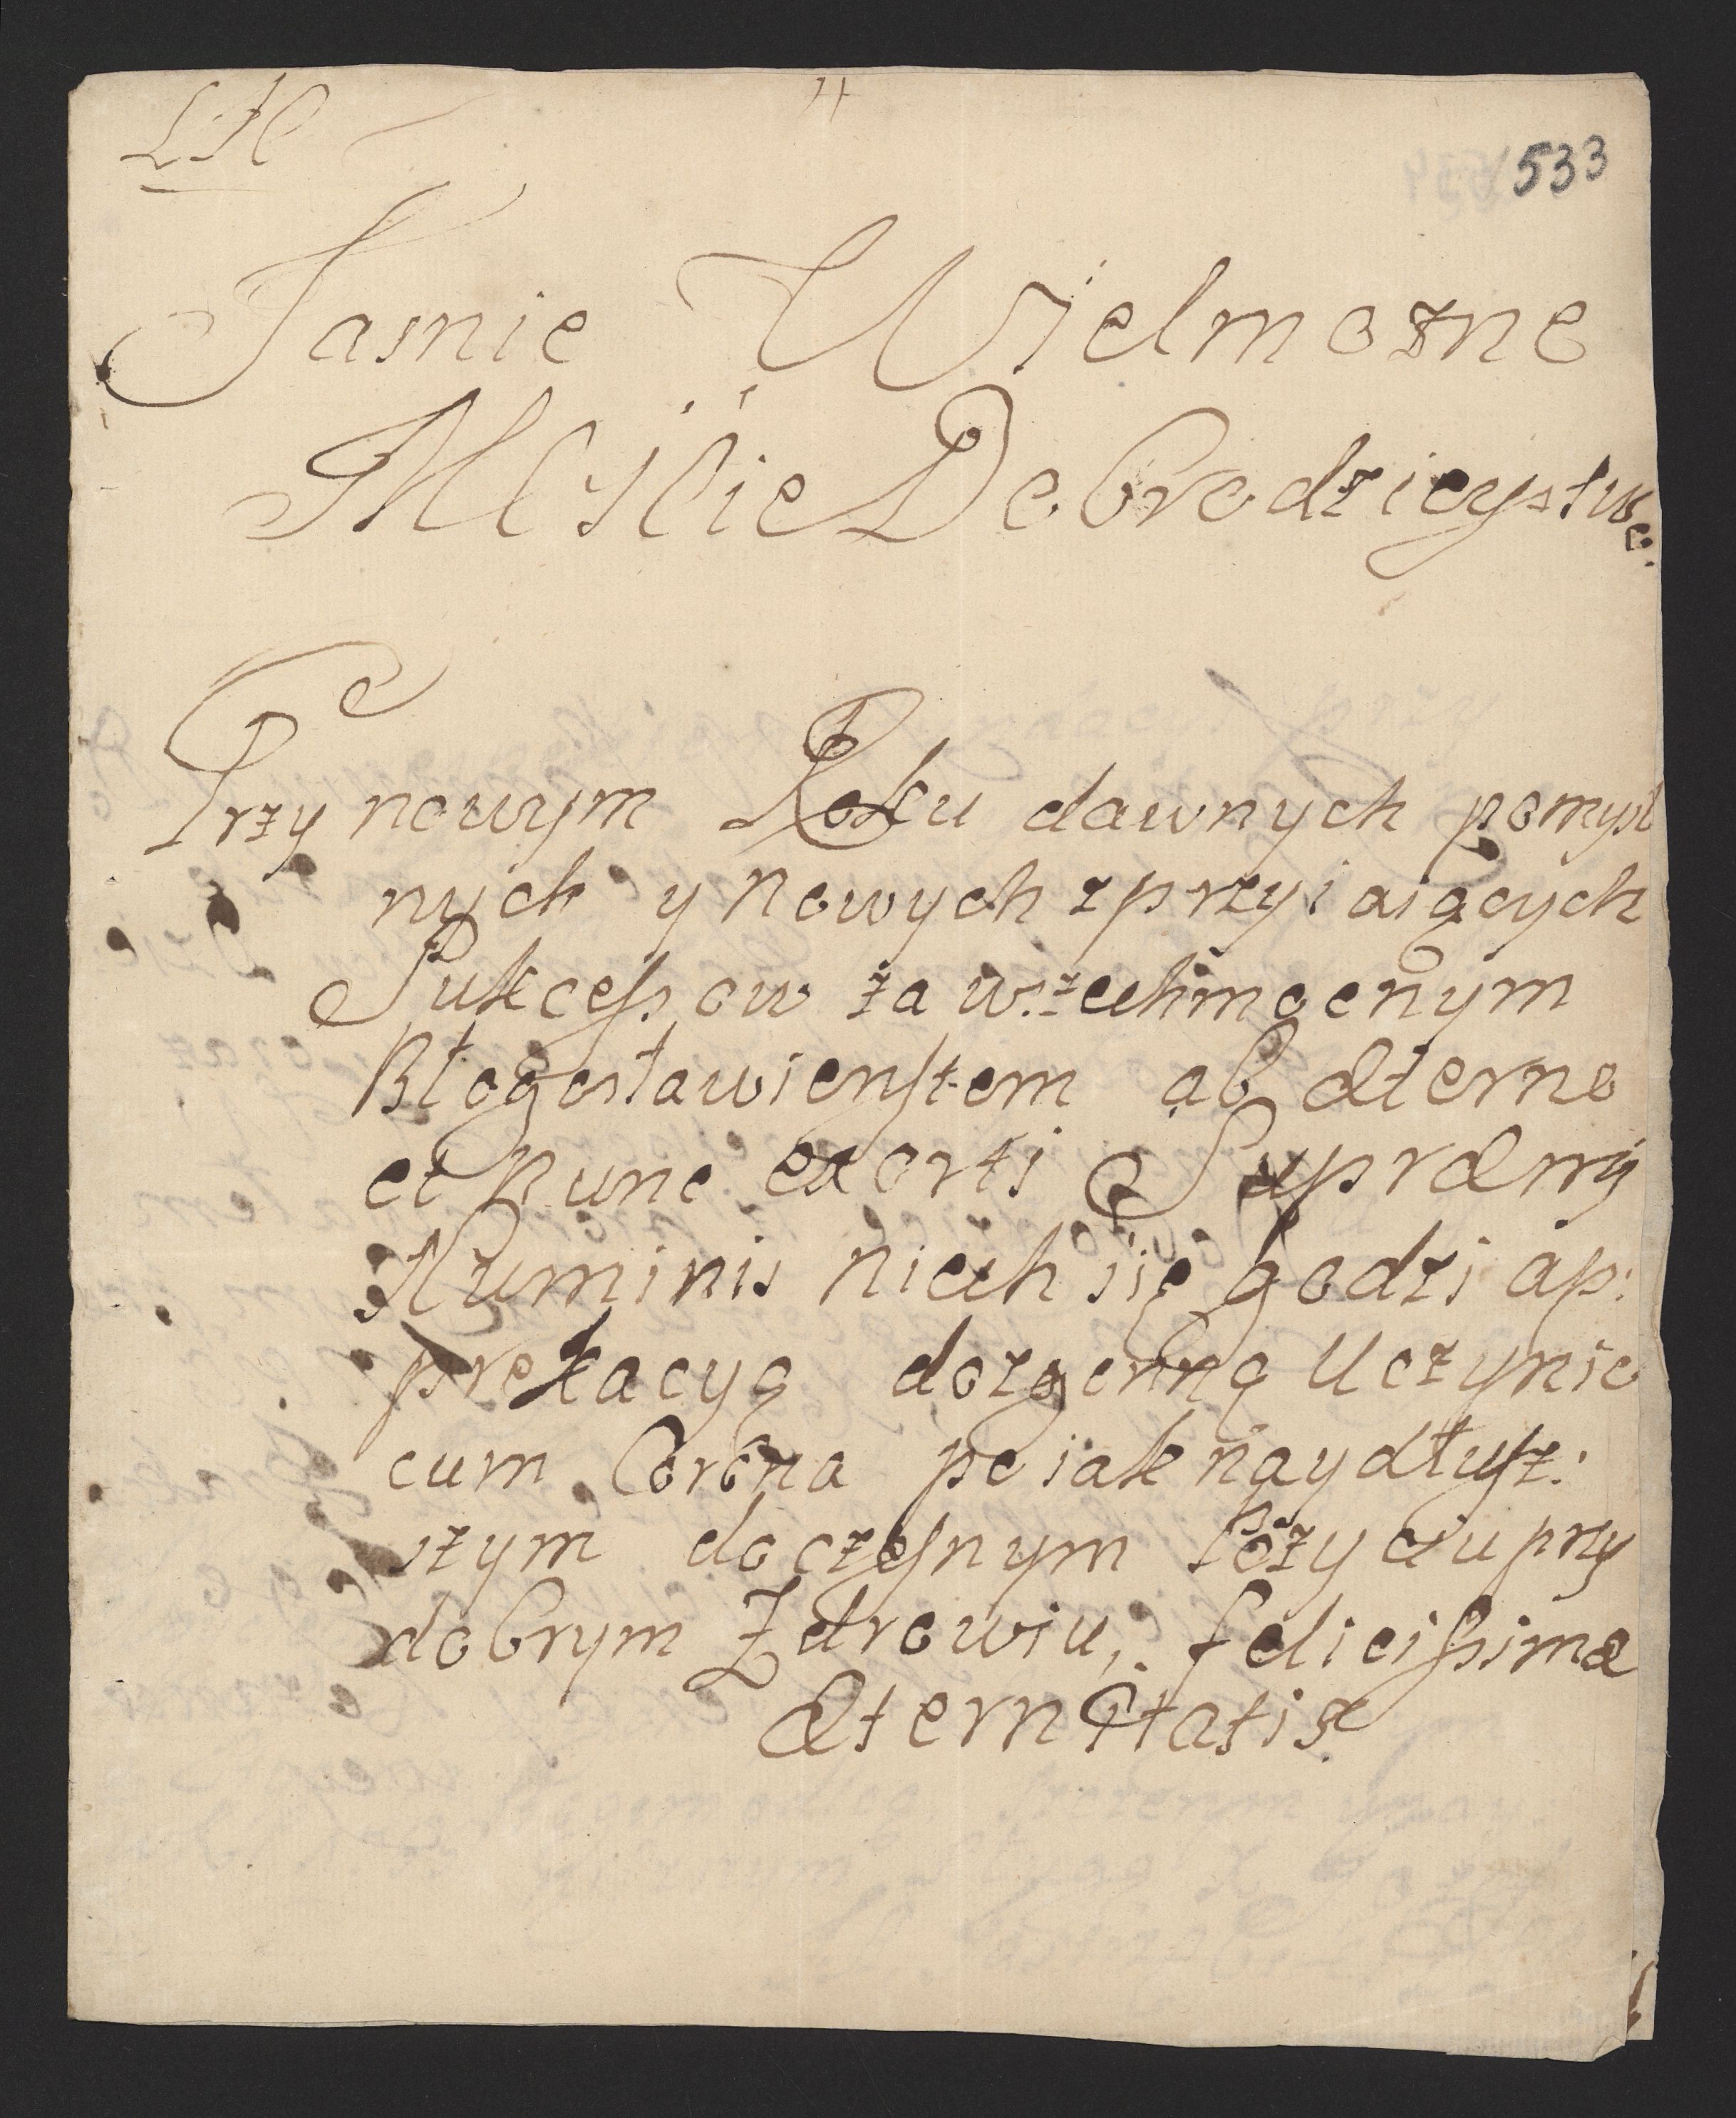 533
Jasnie Wielmozne
MCSSCie Dobrodzieystwo.
Przy nowym Roku dawnych pomysl
nych y nowych zprzyiaiących
Sukcessow za wszechmocnym
Błogosławienstem ab æterno
et nunc exorti Supræmi
Numinis niech się godzi ap:
prekacyą dozgonną Uczynic
cum Corona po iak naydłusz:
szym doczesnym pożyciu przy
dobrym Zdrowiu, felicissimæ
Æternitatis